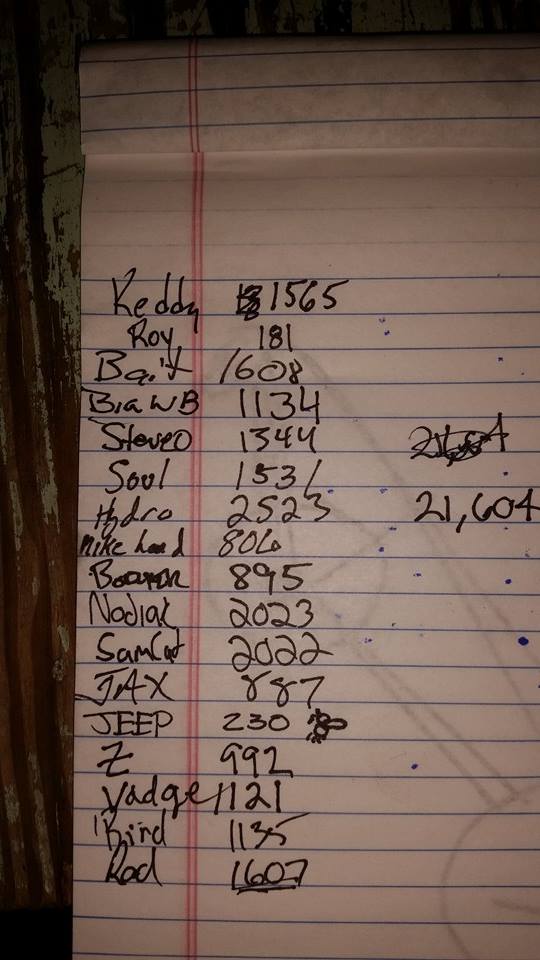 Keddy 1565
Roy 181
Bait 1608
Big WB 1134
Steveo 1344
Soul 1531
Hydro 2523 21,604
Mike 806
895
Nodiak 2023
SamCat 2022
JAX 887
JEEP 230
Z 992
Vadger 1121
Bird 1135
Rod 1607